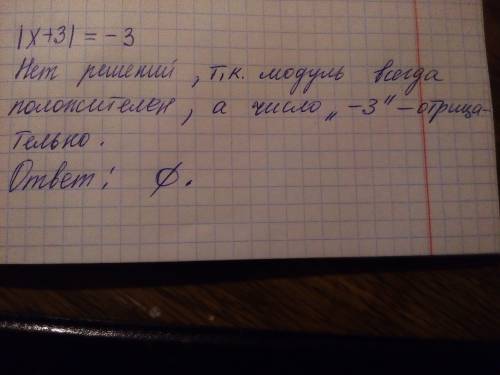 |x+3| = -3
Нет решений, т.к. модуль всегда
положителен, а число „-3" - отрица-
тельно.
Ответ: ∅.